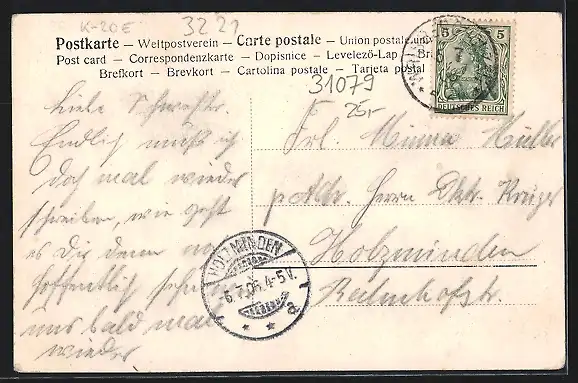 K-20E
3221
Postkarte — Weltpostverein — Carte postale — Union postale
Post card — Correspondenzkarte — Dopisnice — Levelező-Lap —
Brefkort — Brevkort — Cartolina postale — Tarjeta postal
5 5
DEUTSCHES REICH
31079
25,-
Liebe Schwester.
Endlich muß ich
doch mal wieder
schreiben, wie geht
es Dir denn
hoffentlich
uns bald mal
wieder
Frl. Minna Müller
p. Adr. Herrn Krüger
Holzminden
Bahnhofstr.
HOLZMINDEN
6.7.05. 4-5 V.
* * a